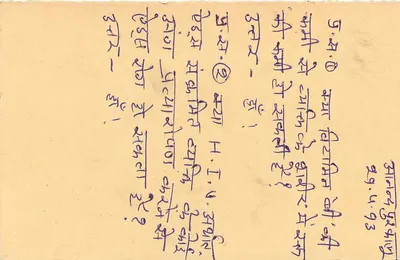 आनन्द प्रकाश
29.4.93
प्र.स. ① क्या विटामिन बी की
कमी से व्यक्ति के शरीर में रक्त
की कमी हो सकती है?
उत्तर – हाँ।
प्र.स. ② क्या H.I.V. अर्थात्
एड्स संक्रमित व्यक्ति के कोई
अंग प्रत्यारोपण करने से
एड्स रोग हो सकता है?
उत्तर – हाँ।